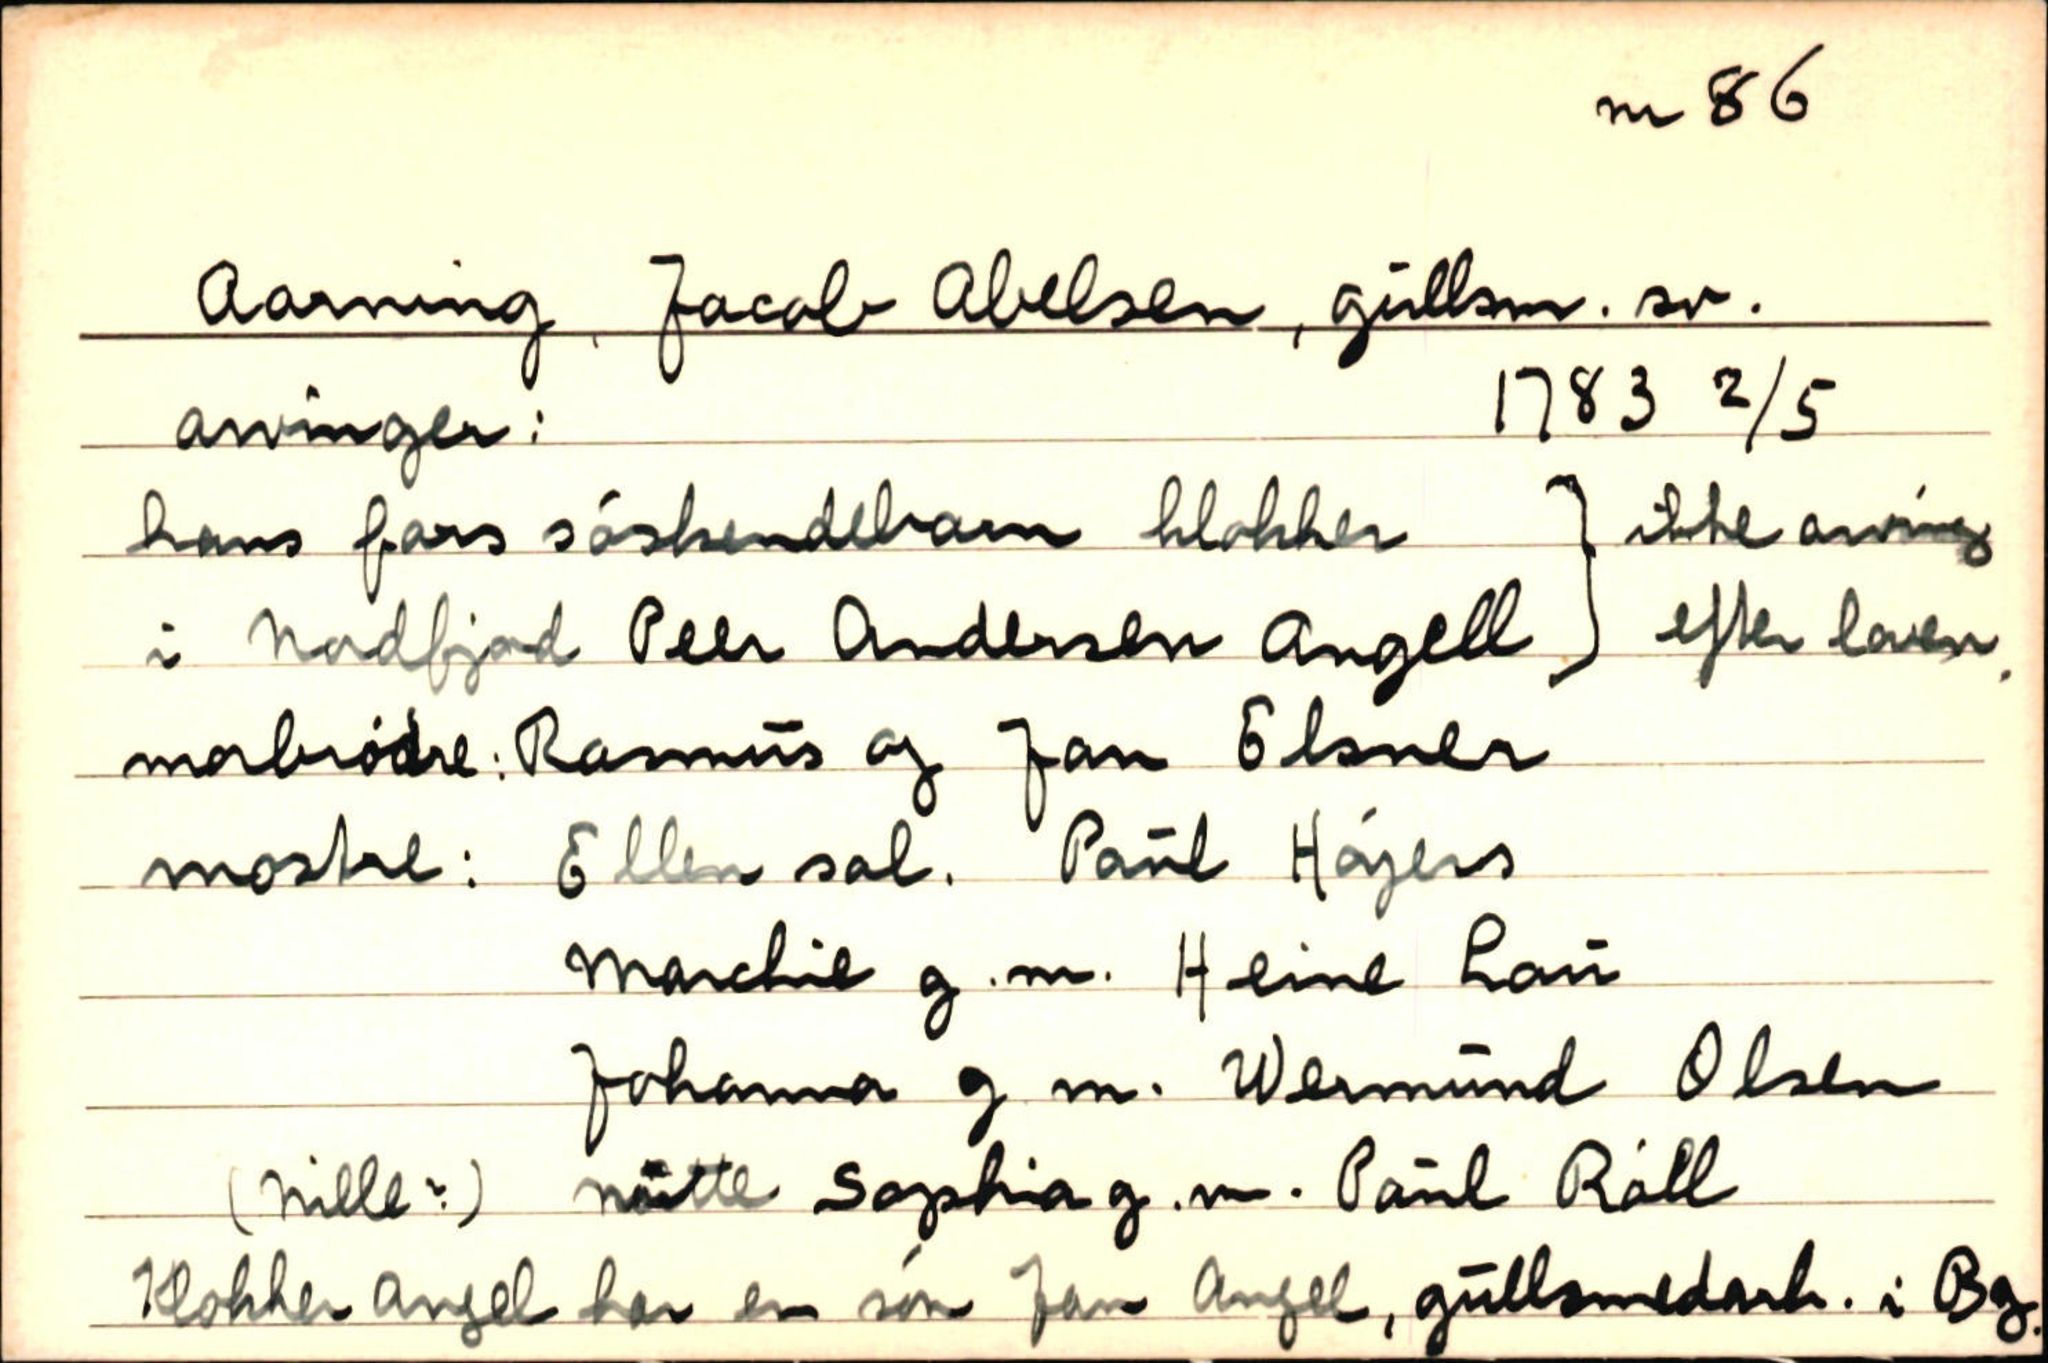 m 86
Aarning, Jacob Abelsen, gullsm. sv.
arvinger: 1783 2/5
hans fars söskendebarn klokker } ikke arving
i Nordfjord Peer Andersen Angell } efter loven.
morbrödre: Rasmus og Jan Elsner
mostre: Ellen sal. Paul Höyers
Marchie g.m. Heine Lau
Johanna g m. Wermund Olsen
(Nille?) Nutte Sophia g.m. Paul Röll
Klokker Angel har en sön Jan Angel, gullsmedark. i Bg.